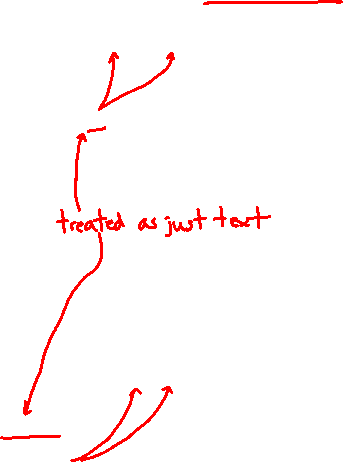 treated as just text